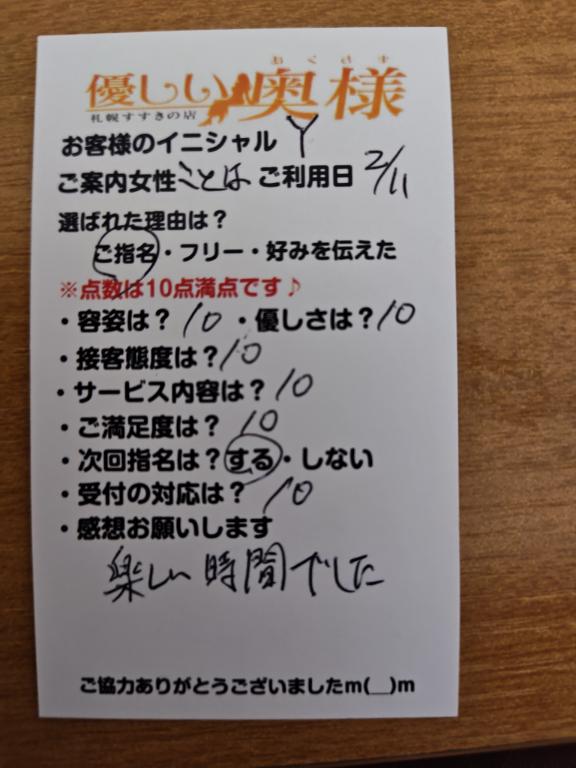 おくさま
優しい奥様
札幌すすきの店
お客様のイニシャル Y
ご案内女性 ことは ご利用日 2/11
選ばれた理由は？
ご指名・フリー・好みを伝えた
※点数は10点満点です♪
・容姿は？ 10 ・優しさは？10
・接客態度は？10
・サービス内容は？ 10
・ご満足度は？ 10
・次回指名は？する・しない
・受付の対応は？ 10
・感想お願いします
楽しい時間でした
ご協力ありがとうございましたm(__)m